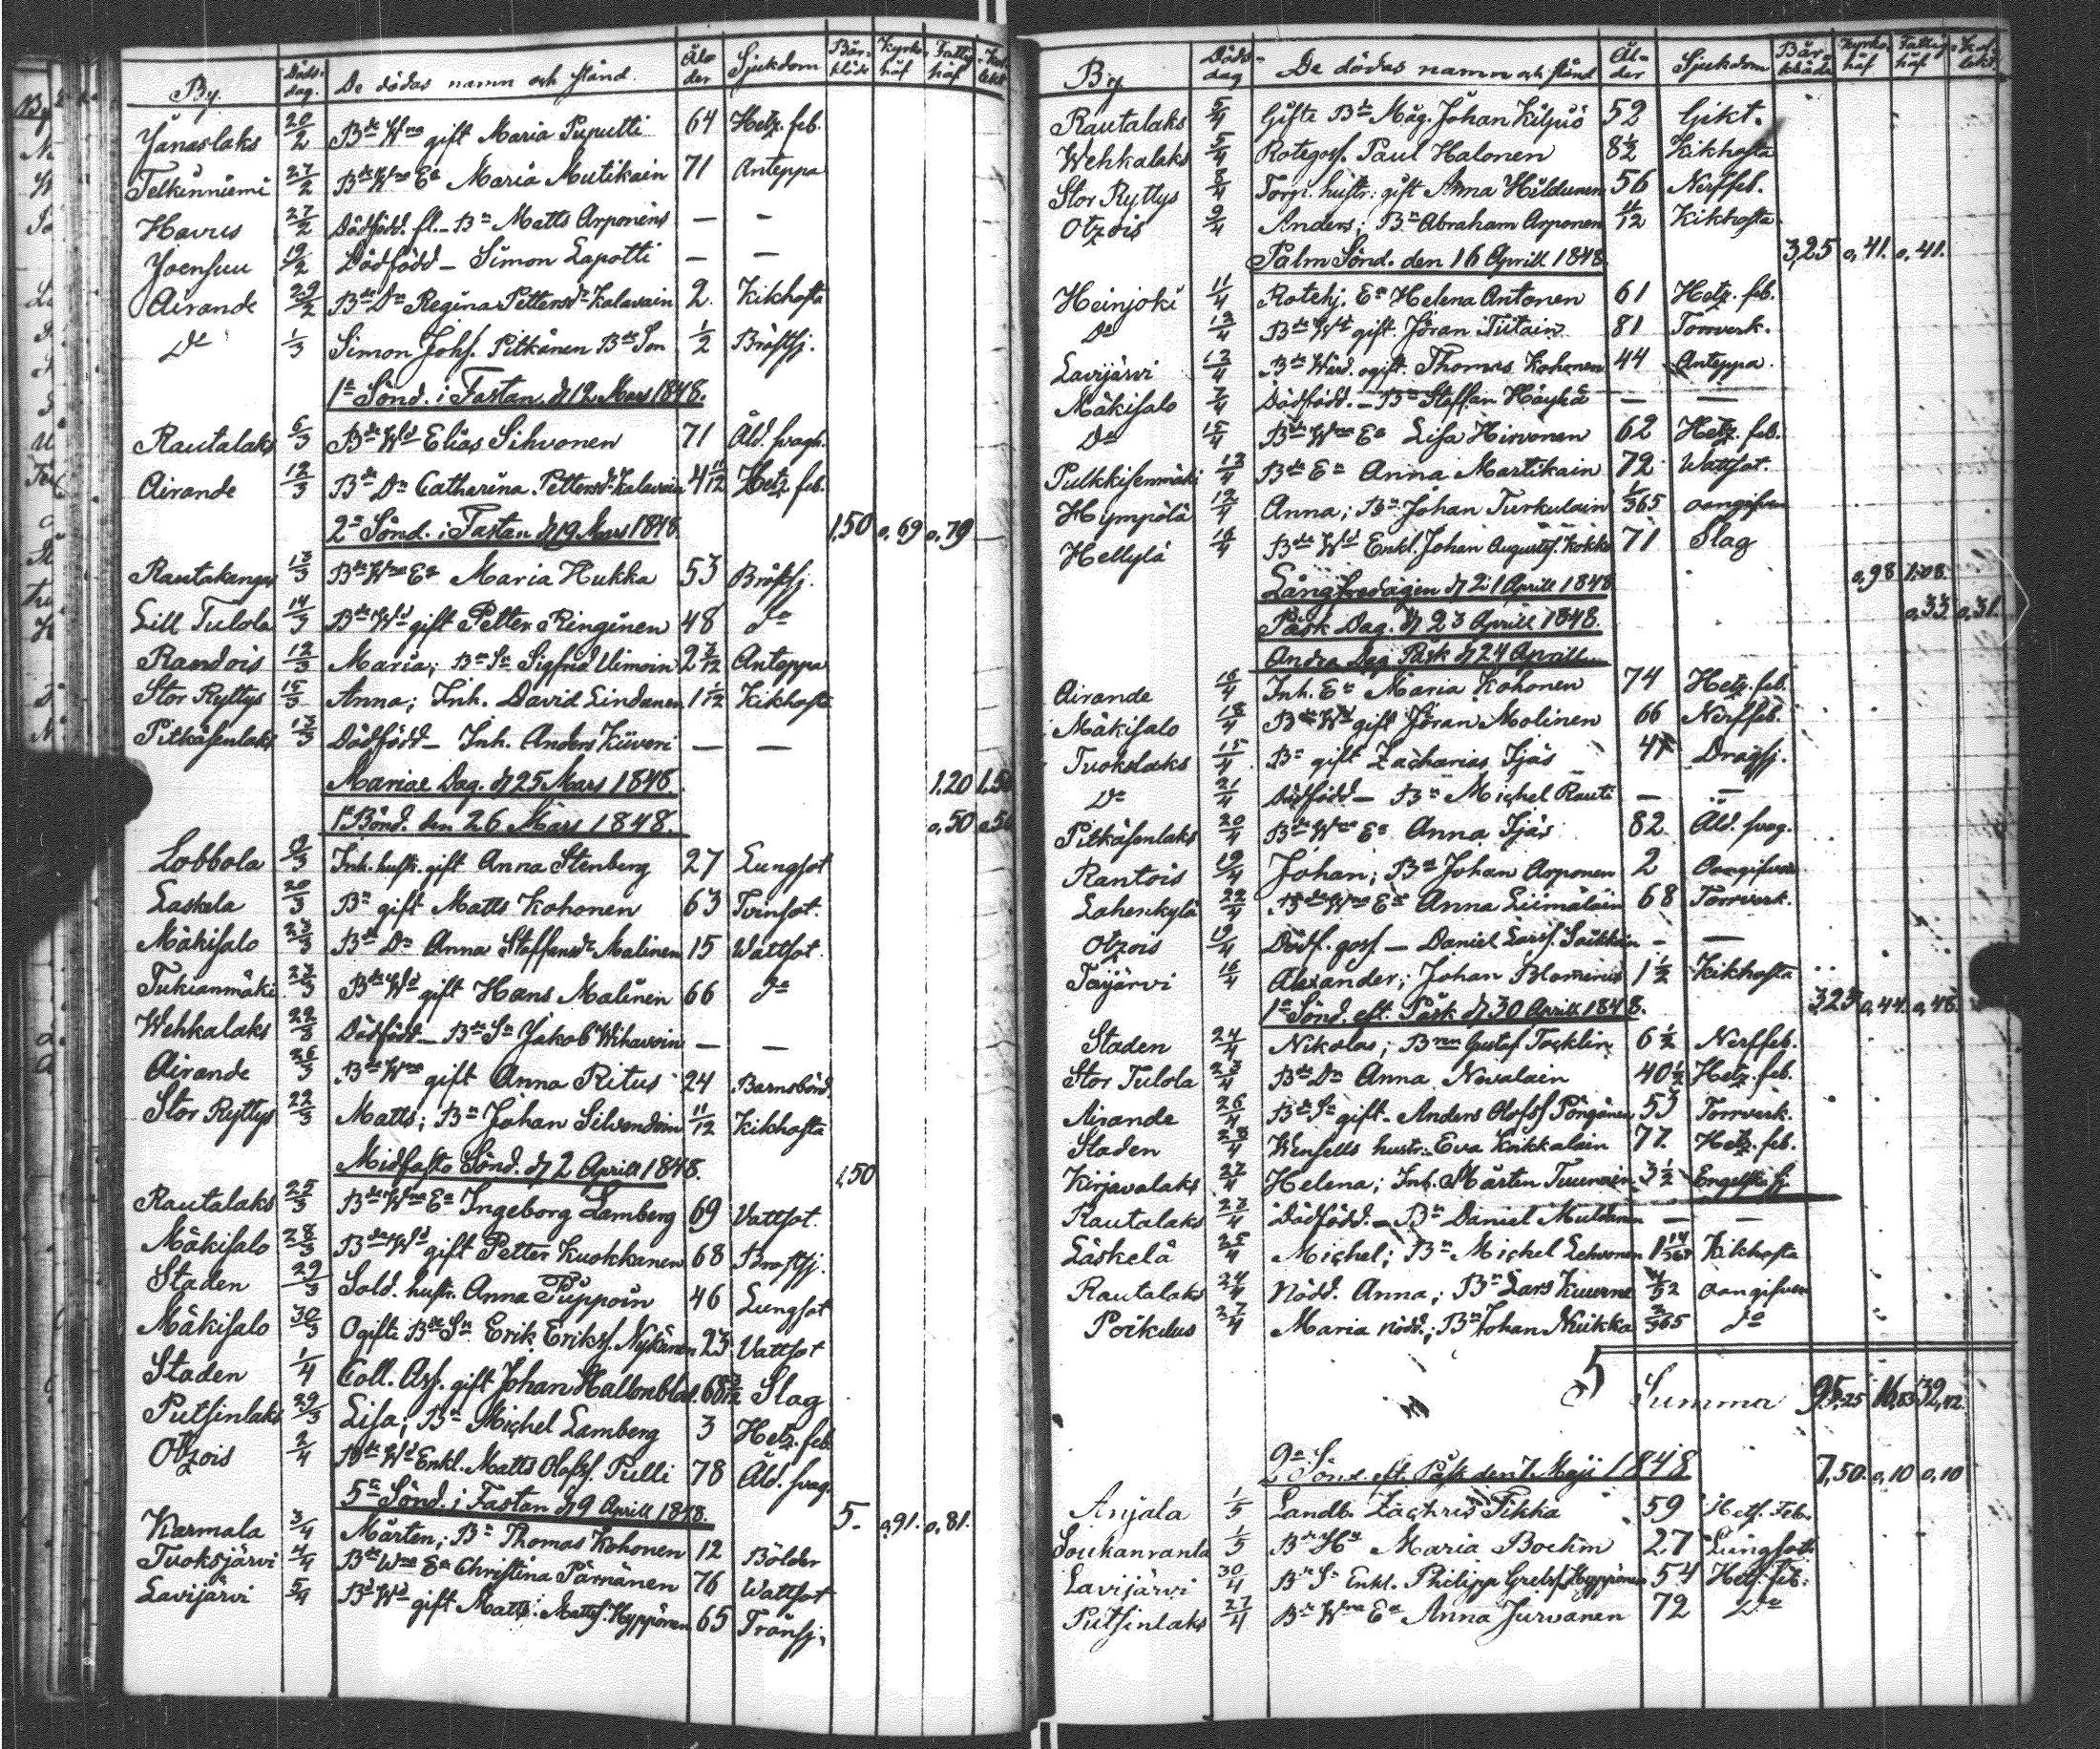 By. Döds-dag. De dödas namn och stånd. Ålder Sjukdom Bår-kläde Kyrko-håf Fattig-håf Kollekt
Jänaslaks 20/2 Bde Wna gift Maria Puputti 64 Hetz. feb.
Telkinniemi 27/2 Bde Wna Ea Maria Mutikain 71 Anteppa
Havus 27/2 Dödfödd. fl. – Bn Matts Arponens — –
Joensuu 19/2 Dödfödd – Simon Lapotti — –
Airande 29/2 Bde Dn Regina Pettersdr Kalavain 2. Kikhosta
Do 1/3 Simon Johs. Pitkänen Bde Son 1/2 Bröstsj.
1a Sönd. i Fastan. d. 12 Mars 1848.
Rautalaks 6/3 Bde Wd Elias Sihvonen 71 Åld. svagh.
Airande 12/3 Bde Dn Catharina Pettersd. Kalavain 4 11/12 Hetz. feb.
2a Sönd. i Fastan d. 19 Mars 1848. 1,50 0,69 0,79 —
Rautakangas 13/3 Bde Wna Ea Maria Hukka 53 Bröstsj.
Lill Tulola 14/3 Bde Wd gift Petter Ringinen 48 Do
Randois 12/3 Maria; Bde Sn Sigfrid Uimoin 2 2/12 Anteppa
Stor Ryttys 15/3 Anna; Inh. David Lindanen 1 1/12 Kikhosta
Pitkäsenlaks 13/3 Dödfödd – Inh. Anders Kiiveri — —
Mariae Dag. d. 25 Mars 1848. 1,20 1,50
1 Bönd. den 26 Mars 1848. 0,50
Lobbola 9/3 Inh. hustr. gift Anna Stenberg 27 Lungsot
Laskela 20/3 Bn gift Matts Kohonen 63 Tvinsot.
Mäkisalo 23/3 Bde Dn Anna Staffansdr Malinen 15 Wattsot
Tukianmäki Bde Wd gift Hans Malinen 66 Do
Wehkalaks 22/3 Dödfödd – Bde Sn Jakob Wihavoin — —
Airande 26/3 Bde Wna gift Anna Ritus 24 Barnsbörd
Stor Ryttys 22/3 Matts; Bn Johan Silvendoin 11/12 Kikhosta
Midfasto Sönd. d. 2 Aprill 1848. 1,50
Rautalaks 25/3 Bde Wna Ea Ingeborg Lamberg 69 Vattsot.
Mäkisalo 28/3 Bde Wd gift Petter Kuokkanen 68 Bröstsj.
Staden 29/3 Sold. hustr. Anna Puppoin 46 Lungsot
Mäkisalo 30/3 Ogifte Bde Sn Erik Erikss. Nykänen 23 Vattsot
Staden 1/4 Coll. Ass. gift Johan Hallonblad. Slag
Putsinlaks 29/3 Lisa; Bn Michel Lamberg 3 Hetz. feb.
Otzois 2/4 Bde Wd Enkl. Matts Olofss. Pulli 78 Åld. svag.
5a Sönd. i Fastan d. 9 Aprill 1848. 5.– 0,91. 0,81.
Karmala 3/4 Mårten; Bn Thomas Kohonen 12 Bölder
Tuoksjärvi 4/4 Bde Wna Ea Christina Pärnänen 76 Wattsot
Lavijärvi 5/4 Bde Wd gift Matts. Mattss. Hyppönen 65 Tränsj.
By Döds-dag De dödas namn och stånd Ålder Sjukdom Bår-kläde Kyrko-håf Fattig-håf Kollekt
Rautalaks 5/4 Gifte Bde Måg. Johan Kiljus 52 Gikt.
Wehkalaks 5/4 Rotegoss. Paul Halonen 8 1/2 Kikhosta
Stor Ryttys 8/4 Torp. hustr. gift Anna Hildunen 56 Nerffeb.
Otzois 9/4 Anders; Bn Abraham Arponen 11/12 Kikhosta
Palm Sönd. den 16 Aprill 1848. 3,25 0,41. 0,41.
Heinjoki 11/4 Rotehj. En Helena Antonen 61 Hetz. feb.
Do 12/4 Bde Wd gift. Jöran Tiitain 81 Torrverk.
Lavijärvi 12/4 Bde Wärd. ogift. Thomas Kohonen 44 Anteppa.
Mäkisalo 7/4 Dödfödd. – Bn Staffan Häyhä — —
Do 15/4 Bde Wna Ea Lisa Hirvonen 62 Hetz. feb.
Pulkkisenmäki 13/4 Bde En Anna Martikain 72 Wattsot.
Hympölä 12/4 Anna; Bn Johan Turkulain 1/365 oangifven
Hellylä 16/4 Bde Wd Enkl. Johan Augusts. Kokko 71 Slag
Långfredagen d. 21 Aprill 1848 0,98 1,08.
Påsk Dag. d. 23 Aprill 1848. 0,33 0,31.
Andra Dag Påsk d. 24 Aprill
Airande 16/4 Inh. En Maria Kohonen 74 Hetz. feb.
Mäkisalo 18/4 Bde Wd gift Jöran Molinen 66 Nerffeb.
Tuokslaks 15/4 Bn gift Zacharias Ijäs 47 Dragsj.
Do 21/4 Dödfödd – Bn Michel Rauti — —
Pitkäsenlaks 20/4 Bde Wna Ea Anna Ijäs 82 Åld. svag.
Rantois 19/4 Johan; Bn Johan Arponen 2 Oangifven
Lahenkylä 22/4 Bde Wna Ea Anna Liimatain 68 Torrverk.
Otzois 19/4 Dödf. goss – Daniel Larss. Saikkoin – —
Täyjärvi 16/4 Alexander; Johan Blomerus 1 1/2 Kikhosta
1a Sönd. eft. Påsk d. 30 Aprill 1848. 3,25 0,44. 0,48.
Staden 24/4 Nikolas; Bren Gustaf Tocklin 6 1/2 Nerffeb.
Stor Tulola 23/4 Bde Dn Anna Nevalain 40 1/2 Hetz. feb.
Airande 26/4 Bde Sn gift. Anders Olofss. Pöngänen 53 Torrverk.
Staden 28/4 hustr. Eva Koikkalain 77. Hetz. feb.
Kirjavalaks 27/4 Helena; Inh. Mårten Tuunain 3 1/2 Engelska sj.
Rautalaks 27/4 Dödfödd. – Bn Daniel Muldonen — —
Läskelä 25/4 Michel; Bn Michel Lehvonen Kikhosta
Rautalaks 24/4 Nödd. Anna; Bn Lars Kuurne oangifven
Poikelus 27/4 Maria nödd.; Bn Johan Neikka 2/365 Do
5 Summa 95,25 16,83 32,12.
2a Sönd. eft. Påsk den 7. Maji 1848 7,50. 0,10 0,10
Anjala 1/5 Landb. Zachris Tikka 59 Hets. Feb.
Soukanranta 1/5 Bde Ha Maria Boehm 27 Lungsot.
Lavijärvi 30/4 Bde Sn Enkl. Philipp Grelss. Hyppönen 54 Hets. feb.
Putsinlaks 27/4 Bde Wna Ea Anna Jurvanen 72 Do